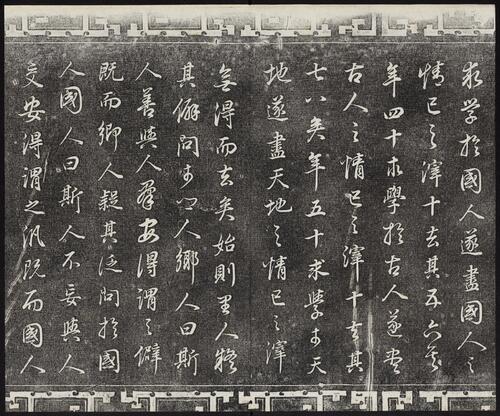 求学於國人遂盡國人之
情已之滓十去其五六矣
年四十求學於古人遂盡
古人之情已之滓十去其
七八矣年五十求學於天
地遂盡天地之情已之滓
無得而去矣始則里人疑
其僻問於鄉人鄉人曰斯
人善與人群安得謂之僻
既而鄉人疑其泛問於國
人國人曰斯人不妄與人
交安得謂之汎既而國人